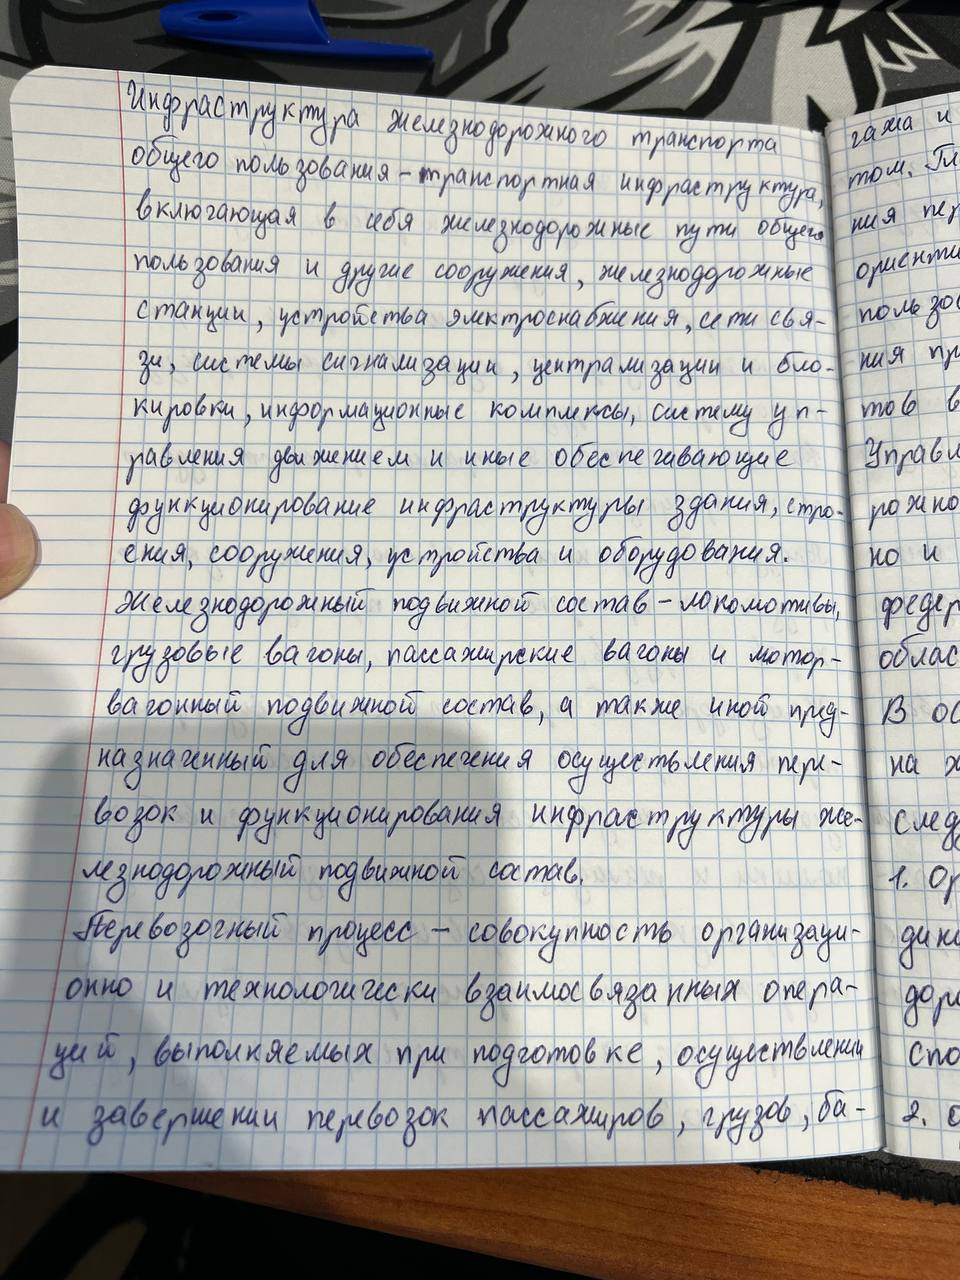 Инфраструктура железнодорожного транспорта
общего пользования – транспортная инфраструктура,
включающая в себя железнодорожные пути общего
пользования и другие сооружения, железнодорожные
станции, устройства электроснабжения, сети свя-
зи, системы сигнализации, централизации и бло-
кировки, информационные комплексы, систему уп-
равления движением и иные обеспечивающие
функционирование инфраструктуры здания, стро-
ения, сооружения, устройства и оборудования.
Железнодорожный подвижной состав – локомотивы,
грузовые вагоны, пассажирские вагоны и мотор-
вагонный подвижной состав, а также иной пред-
назначенный для обеспечения осуществления пере-
возок и функционирования инфраструктуры же-
лезнодорожный подвижной состав.
Перевозочный процесс – совокупность организаци-
онно и технологически взаимосвязанных опера-
ций, выполняемых при подготовке, осуществлении
и завершении перевозок пассажиров, грузов, ба-
гажа и
том. Гл
ния пер
ориенти
пользов
ния пр
тов в
Управл
рожно
но и
федер
облас
В ос
на ж
след
1. Ор
дина
доро
спо
2. о